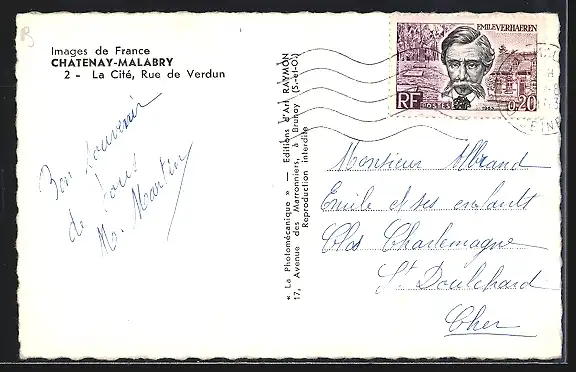 Images de France
CHATENAY-MALABRY
2 - La Cité, Rue de Verdun
Bon Souvenir
de tous
M. Martin
« La Photomécanique » — Editions d'Art RAYMON
17, Avenue des Marronniers, à Brunoy (S.-et-O.)
Reproduction interdite
EMILE VERHAEREN
RF POSTES 1963 0,20
Monsieur
Emile et ses enfants
Clos Charlemagne
St Doulchard
Cher